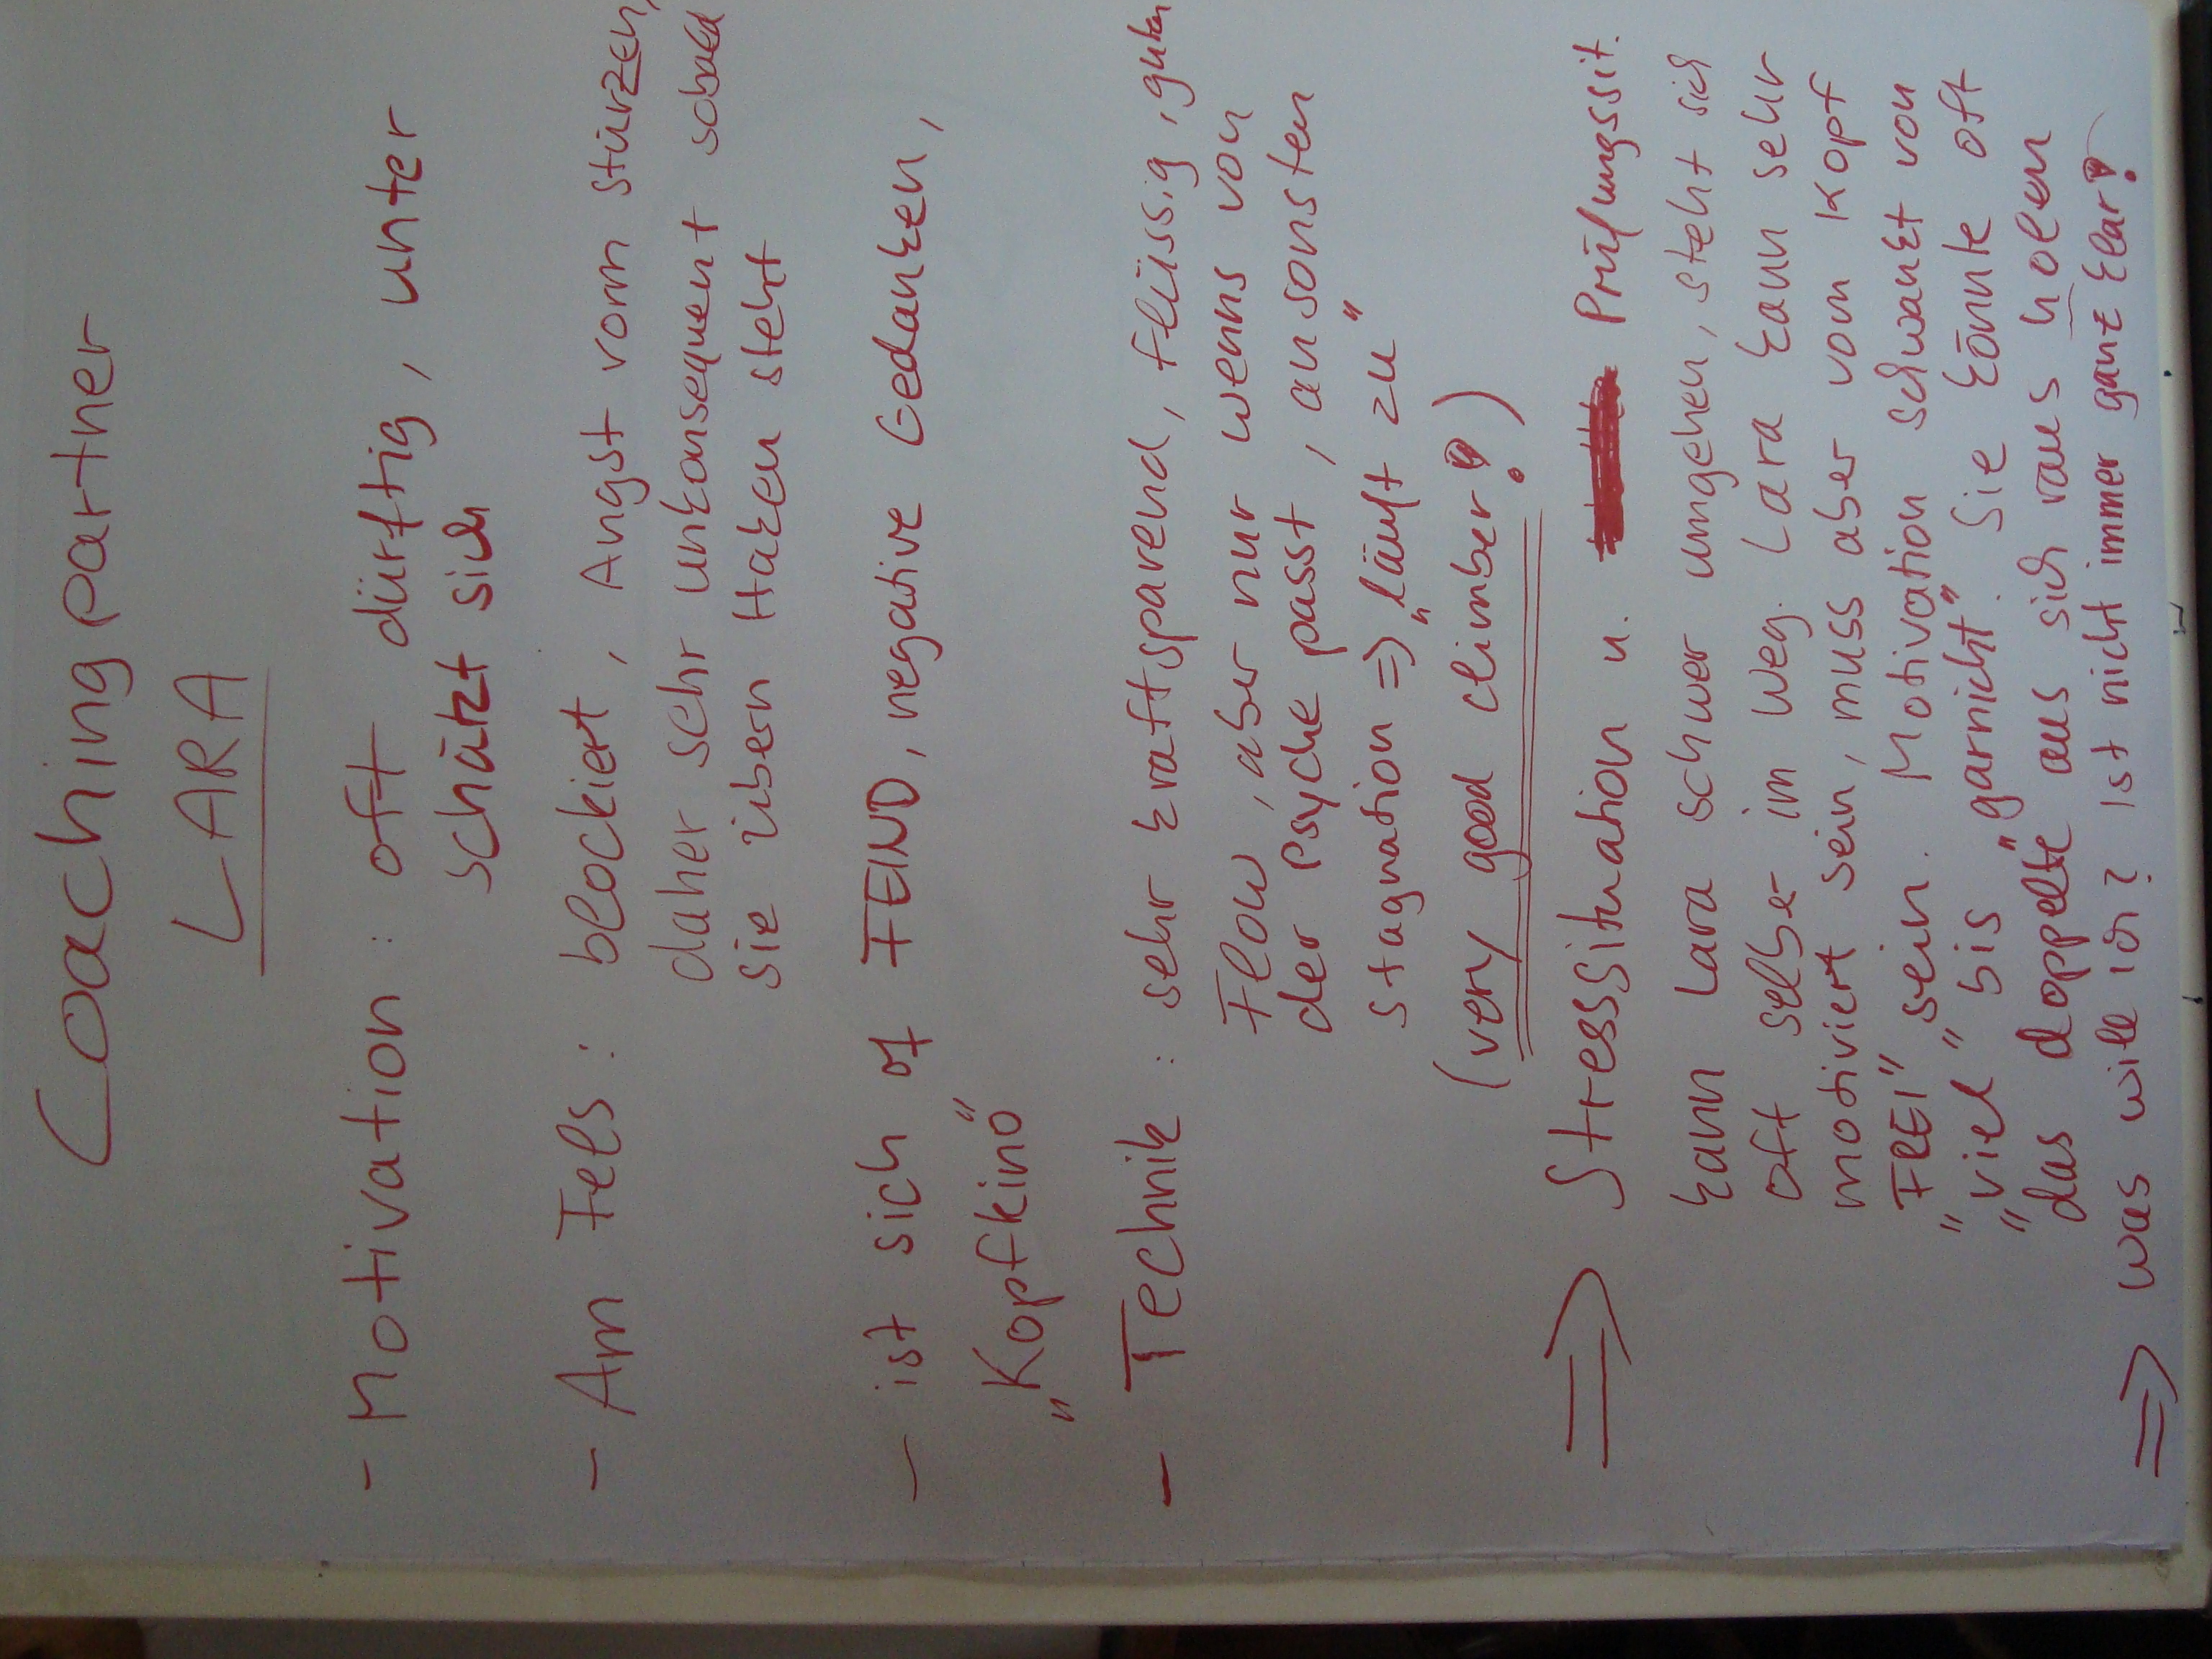 Coachingpartner
LARA
- Motivation: oft dürftig, unter
schätzt sich
- Am Fels: blockiert, Angst vorm stürzen,
daher sehr unkonsequent sobald
sie übern Haken steht
- ist sich oft FEIND, negative Gedanken,
„Kopfkino"
- Technik: sehr kraftsparend, flüssig, guter
Flow, aber nur wenns von
der Psyche passt, ansonsten
stagnation => „läuft zu"
(very good climber!)
=> Stresssituation u. Prüfungssit.
kann Lara schwer umgehen, steht sich
oft selber im Weg. Lara kann sehr
motiviert sein, muss aber vom Kopf
„FREI" sein. Motivation schwankt von
„viel" bis „garnicht". Sie könnte oft
„das doppelte aus sich raus holen
=> was will ich? ist nicht immer ganz klar!